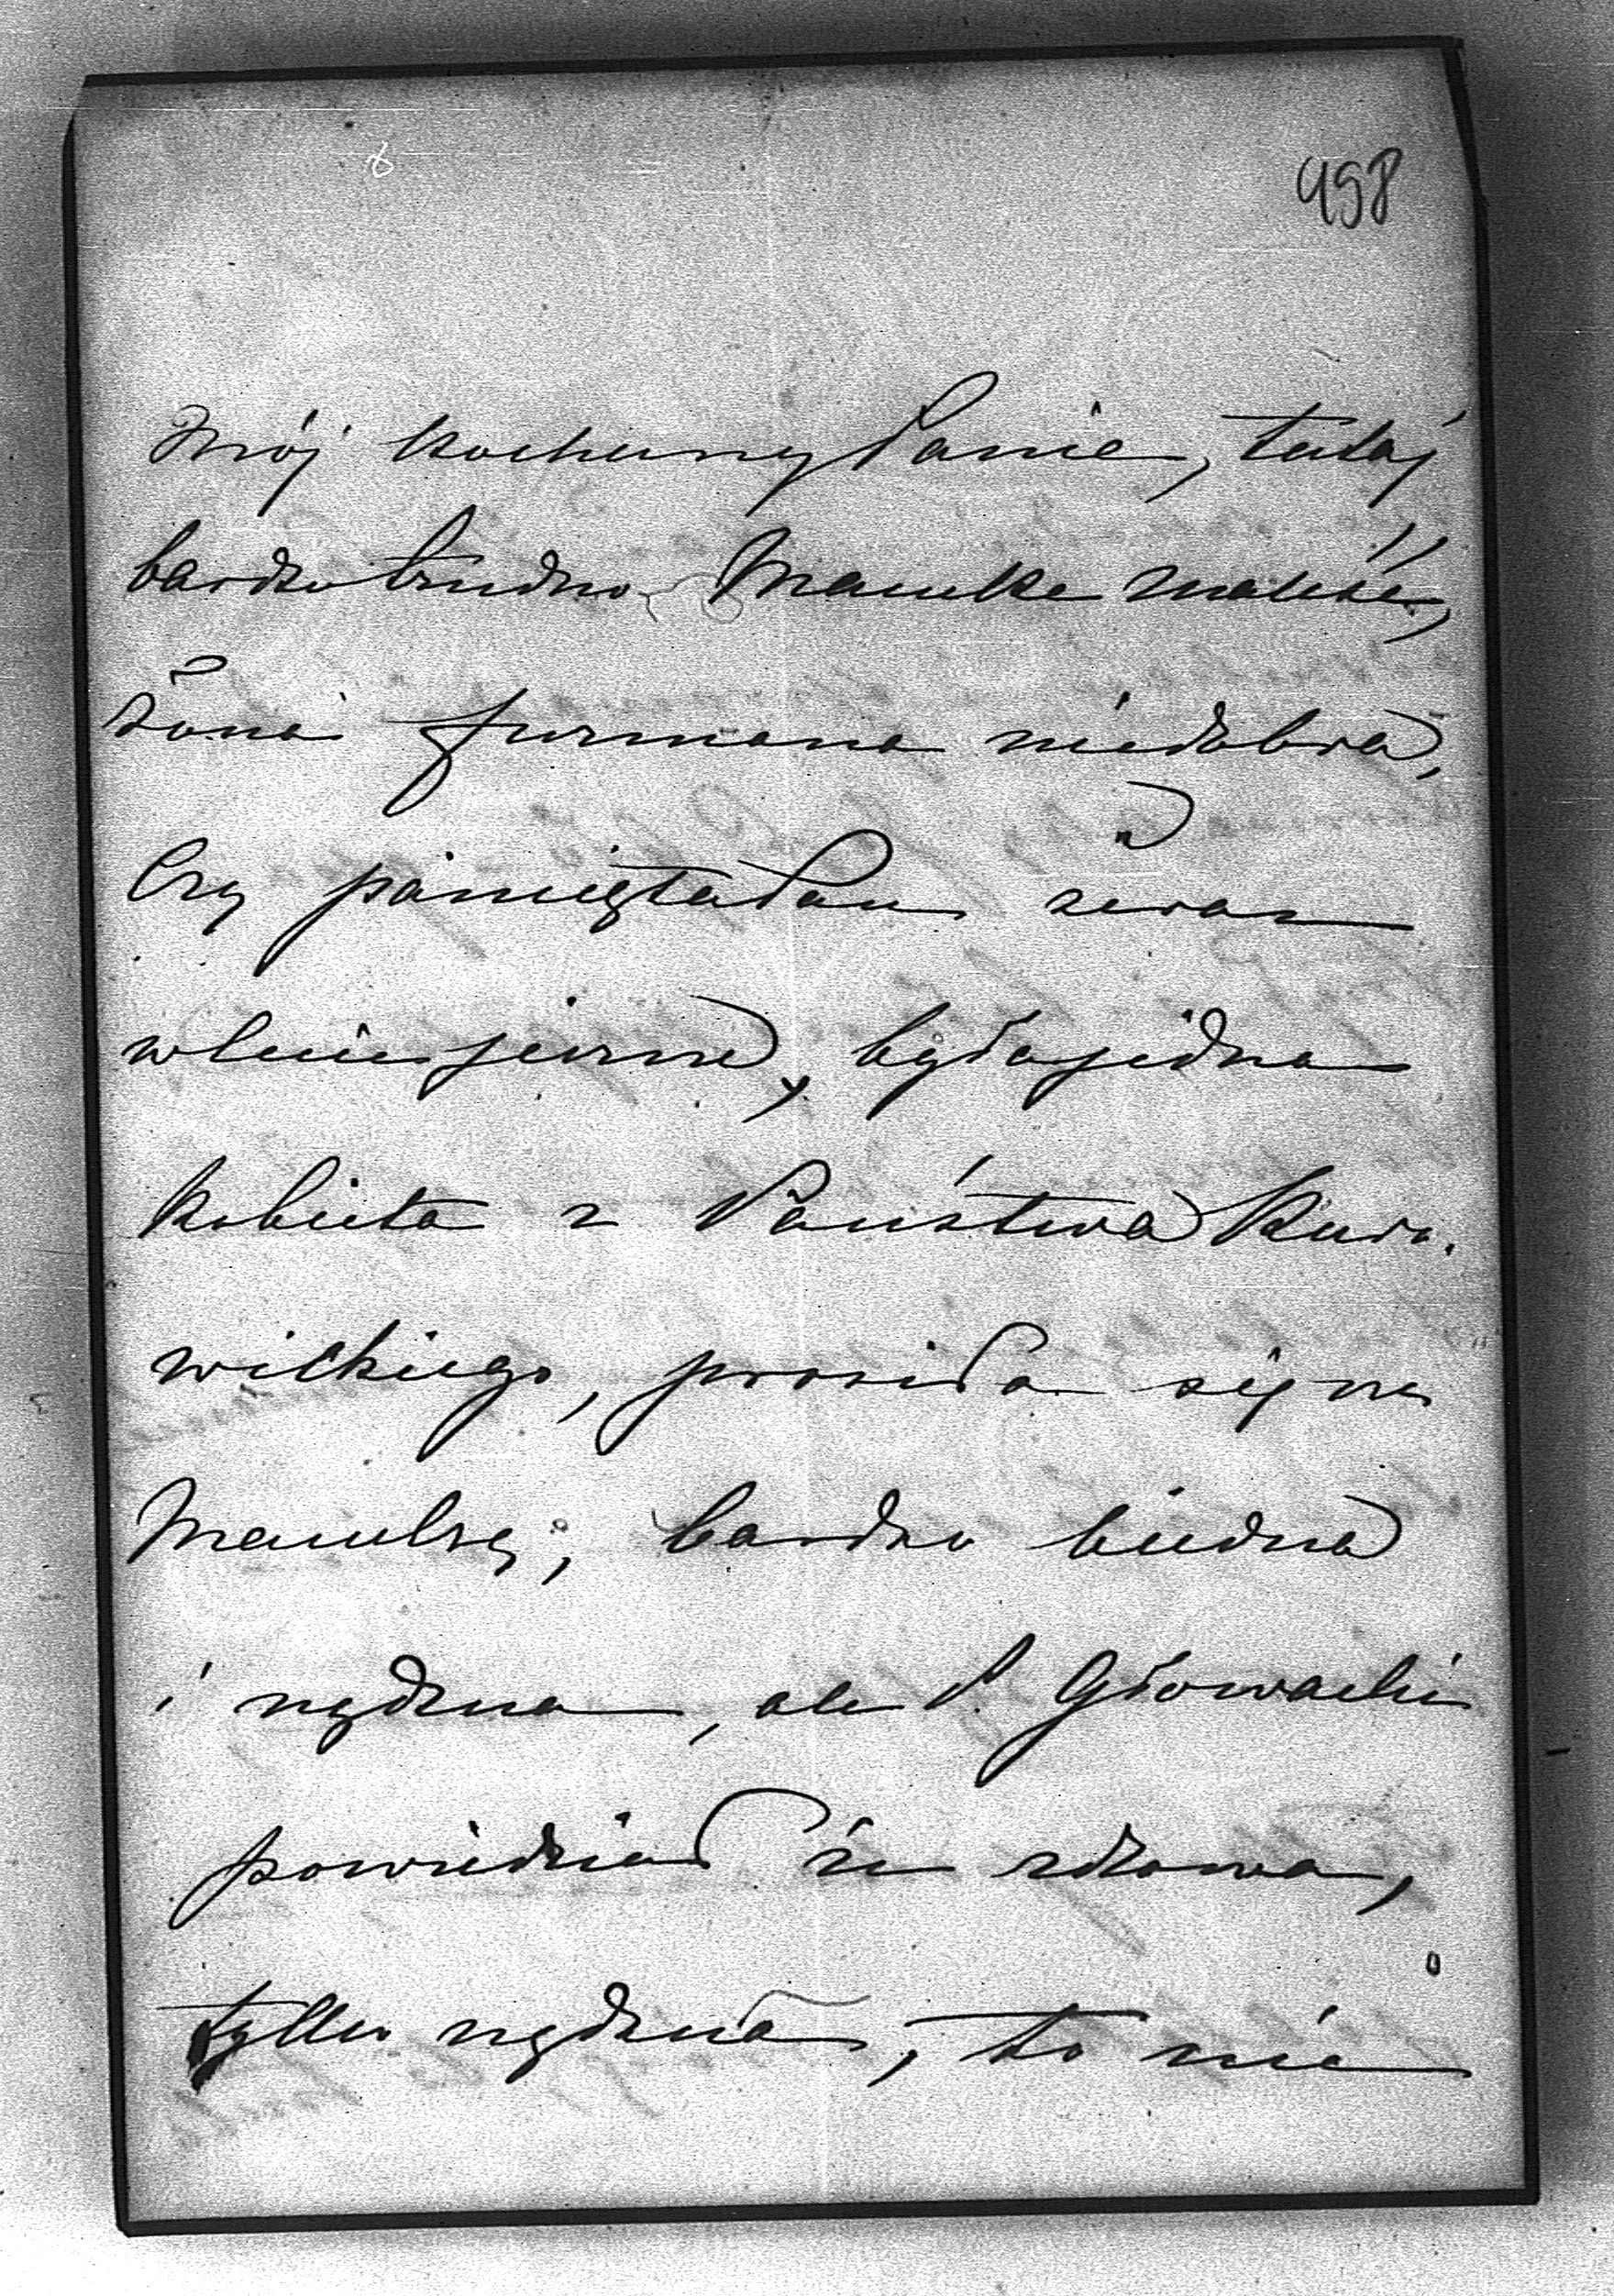 498
Mój kochany Panie, tutaj
bardzo trudno Mamkę znaleść,
żona furmana niedobra,
Czy pamięta Pan zeraz
w Lecie jeszcze, była jedna
kobieta z Państwa Kura.
wilkiego, prosiła się na
Mamkę; bardzo biedna
i nędzna, ale P. Głowacki
powiedział że zdrowa,
tylko nędzna, to nie